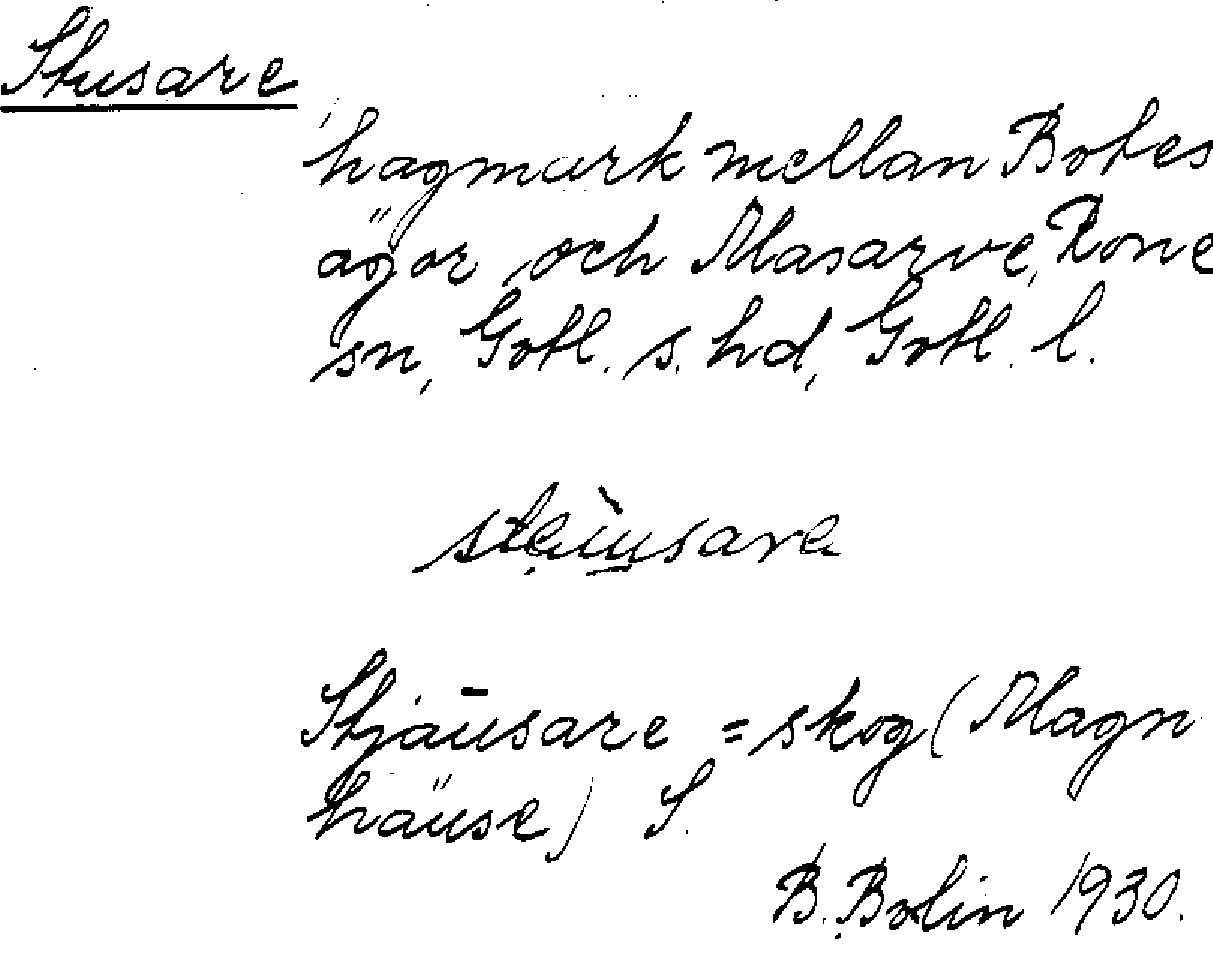 Stusare
hagmark mellan Botes
ägor och Masarve, Rone
sn, Gotl. s. hd, Gotl. l.
Stjäusare = skog (Magn
häuse) S.
B. Bolin 1930.